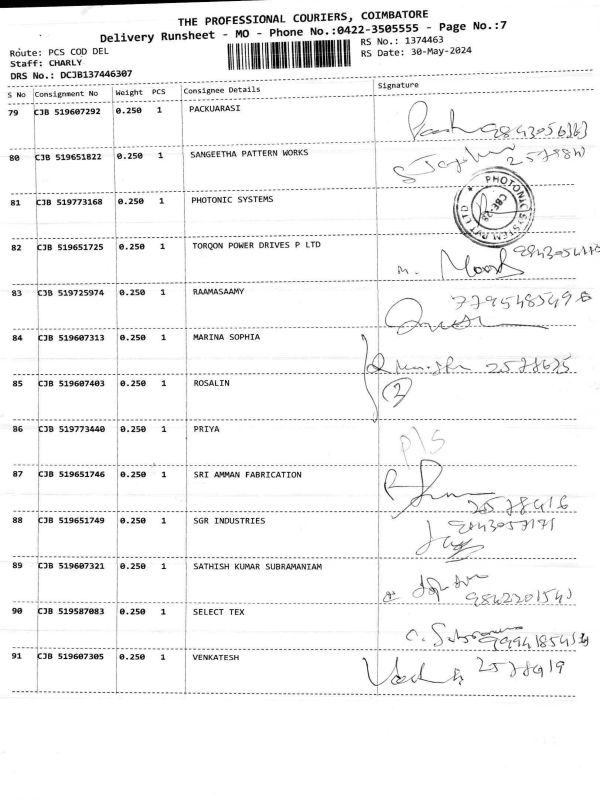 THE PROFESSIONAL COURIERS, COIMBATORE
Delivery Runsheet - MO - Phone No.:0422-3505555 - Page No.:7
Route: PCS COD DEL
RS No.: 1374463
Staff: CHARLY
RS Date: 30-May-2024
DRS No.: DCJB137446307
S No Consignment No Weight PCS Consignee Details Signature
79 CJB 519607292 0.250 1 PACKUARASI
80 CJB 519651822 0.250 1 SANGEETHA PATTERN WORKS
81 CJB 519773168 0.250 1 PHOTONIC SYSTEMS
PHOTONIC SYSTEM PVT LTD
CBE-29
82 CJB 519651725 0.250 1 TORQON POWER DRIVES P LTD
83 CJB 519725974 0.250 1 RAAMASAAMY
84 CJB 519607313 0.250 1 MARINA SOPHIA
2578635
85 CJB 519607403 0.250 1 ROSALIN
2
86 CJB 519773440 0.250 1 PRIYA
P/S
87 CJB 519651746 0.250 1 SRI AMMAN FABRICATION
2578416
88 CJB 519651749 0.250 1 SGR INDUSTRIES
9843057171
89 CJB 519607321 0.250 1 SATHISH KUMAR SUBRAMANIAM
9842201541
90 CJB 519587083 0.250 1 SELECT TEX
91 CJB 519607305 0.250 1 VENKATESH
2578919